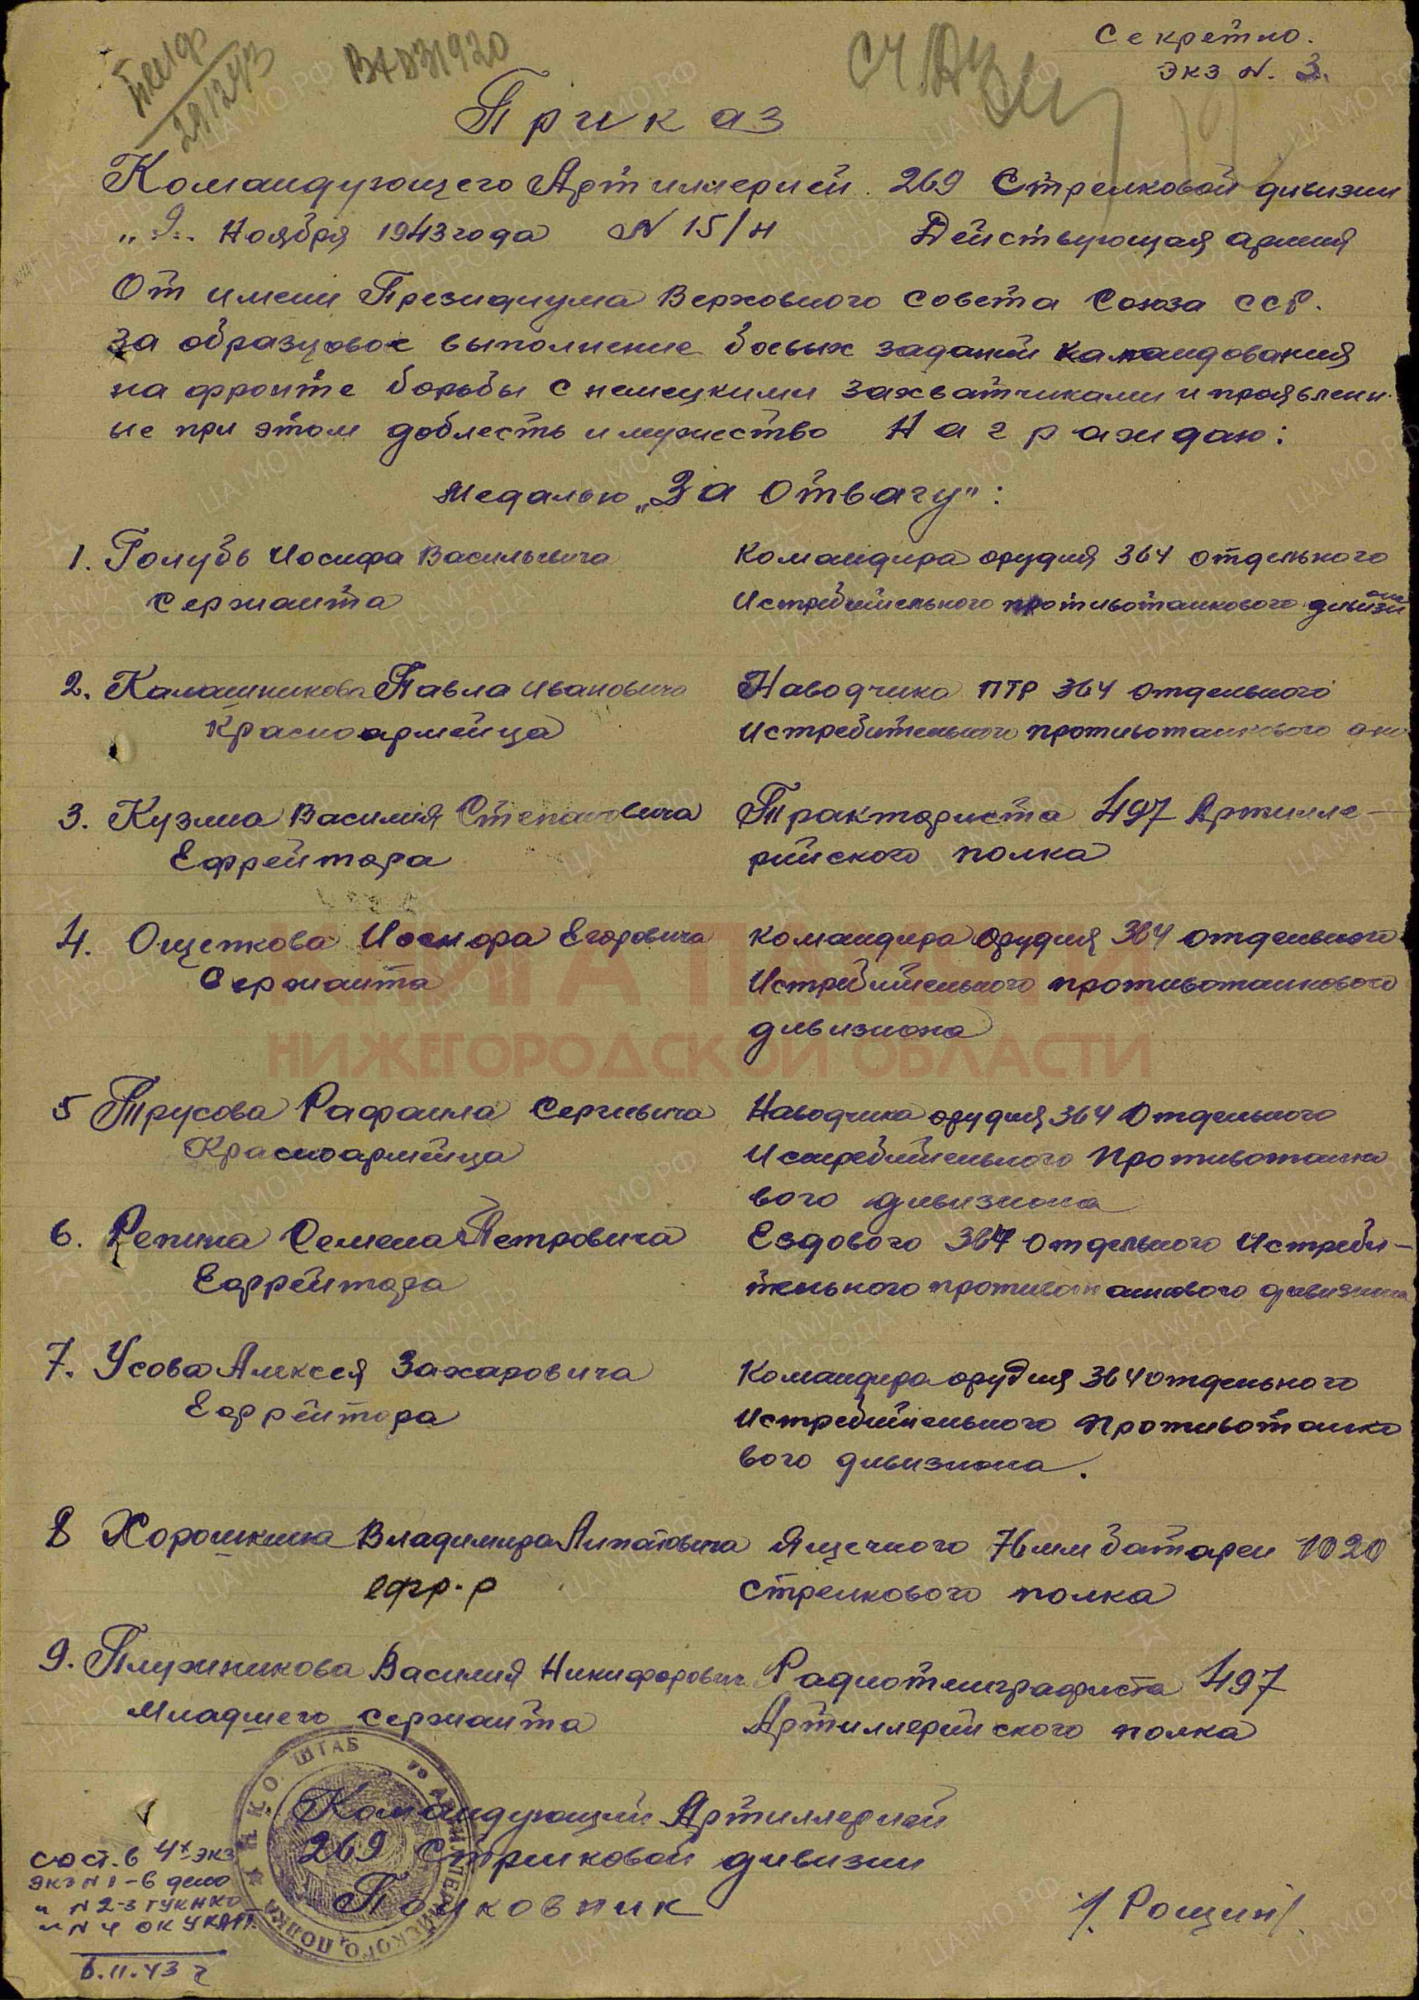 Секретно.
Экз N. 3.
Приказ
Командующего Артиллерией 269 Стрелковой дивизии
"9" Ноября 1943 года N 15/н Действующая армия
От имени Президиума Верховного Совета Союза ССР.
за образцовое выполнение боевых заданий командования
на фронте борьбы с немецкими захватчиками и проявлен-
ые при этом доблесть и мужество Награждаю:
Медалью "За Отвагу":
1. Голубь Иосифа Васильевича Командира орудия 364 отдельного
Сержанта Истребительного противотанкового дивизиона
2. Калашникова Павла Ивановича Наводчика ПТР 364 отдельного
Красноармейца Истребительного противотанкового
3. Кузина Василия Степановича Тракториста 497 Артилле-
Ефрейтора рийского полка
4. Ощепкова Егоровича Командира орудия 364 отдельного
Сержанта Истребительного противотанкового
дивизиона
5 Трусова Рафаила Сергеевича Наводчика орудия 364 Отдельного
Красноармейца Истребительного Противотанко
вого дивизиона
6. Репина Семена Петровича Ездового 364 отдельного Истреби-
Ефрейтора тельного противотанкового дивизиона
7. Усова Алексея Захаровича Командира орудия 364 отдельного
Ефрейтора Истребительного Противотанко
вого дивизиона.
8 Хорошкина Владимира Ипатовича Ящечного 76 мм батареи 1020
ефр-р стрелкового полка
9. Плужникова Василия Никифорович Радиотелеграфиста 497
Младшего сержанта Артиллерийского полка
Командующий Артиллерией
269 Стрелковой дивизии
Полковник /Рощин/
сост. в 4х экз
экз N 1 - в дело
" N 2-3 ГУК НКО
" N 4 ОК УКАРТ.
6.11.43 г
НКО. ШТАБ АРТИЛЛЕРИЙСКОГО ПОЛКА
КНИГА ПАМЯТИ
НИЖЕГОРОДСКОЙ ОБЛАСТИ
ПАМЯТЬ НАРОДА
ЦА МО РФ